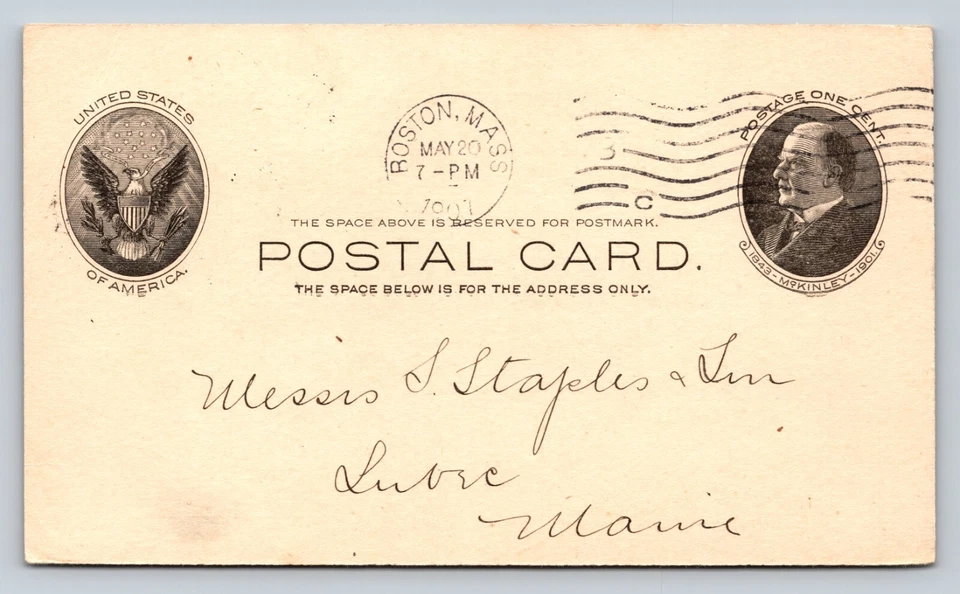 UNITED STATES
OF AMERICA.
BOSTON, MASS
MAY 20
7 - PM
3
C
POSTAGE ONE CENT.
1843 - McKINLEY - 1901.
THE SPACE ABOVE IS RESERVED FOR POSTMARK.
POSTAL CARD.
THE SPACE BELOW IS FOR THE ADDRESS ONLY.
Messrs S. Staples &
Lubec
Maine